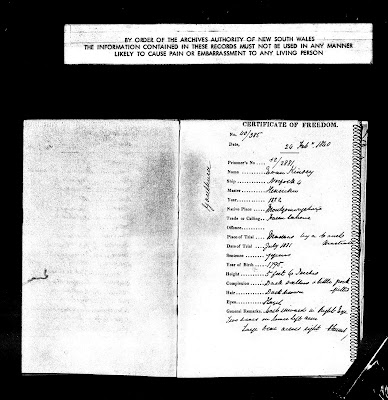 BY ORDER OF THE ARCHIVES AUTHORITY OF NEW SOUTH WALES
THE INFORMATION CONTAINED IN THESE RECORDS MUST NOT BE USED IN ANY MANNER
LIKELY TO CAUSE PAIN OR EMBARRASSMENT TO ANY LIVING PERSON
CERTIFICATE OF FREEDOM.
No. 40/385
Date, 24 Feby 1840
Prisoner's No 32/2881
Name Evan Kinsey
Ship Norfolk 4
Master Henniker
Year 1832
Native Place Montgomeryshire
Trade or Calling Farm labourer
Offence
Place of Trial
Date of Trial July 1831
Sentence 7 years
Year of Birth 1795
Height 5 feet 6 Inches
Complexion Dark sallow & little pock pitted
Hair Dark brown
Eyes Hazel
General Remarks: Cast inwards in Right Eye
Two scars on lower left arm
Large one across right